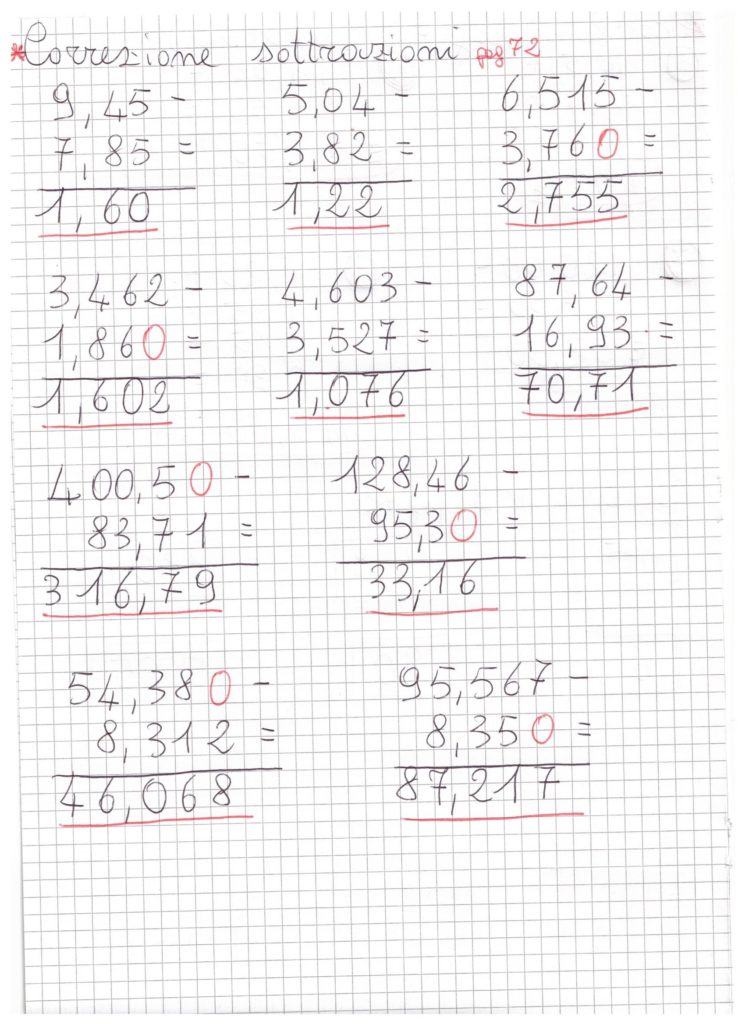 *Correzione sottrazioni pag 72
9,45 - 5,04 - 6,515 -
7,85 = 3,82 = 3,760 =
1,60 1,22 2,755
3,462 - 4,603 - 87,64 -
1,860 = 3,527 = 16,93 =
1,602 1,076 70,71
400,50 - 128,46 -
83,71 = 95,30 =
316,79 33,16
54,380 - 95,567 -
8,312 = 8,350 =
46,068 87,217